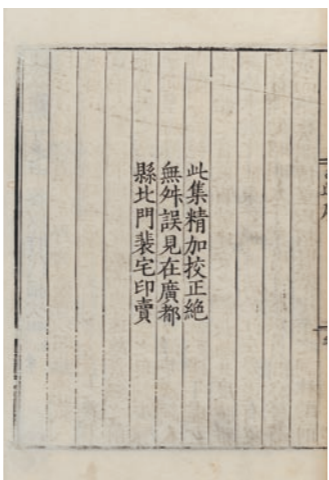 此集精加挍正絶
無舛誤見在廣都
縣北門裴宅印賣